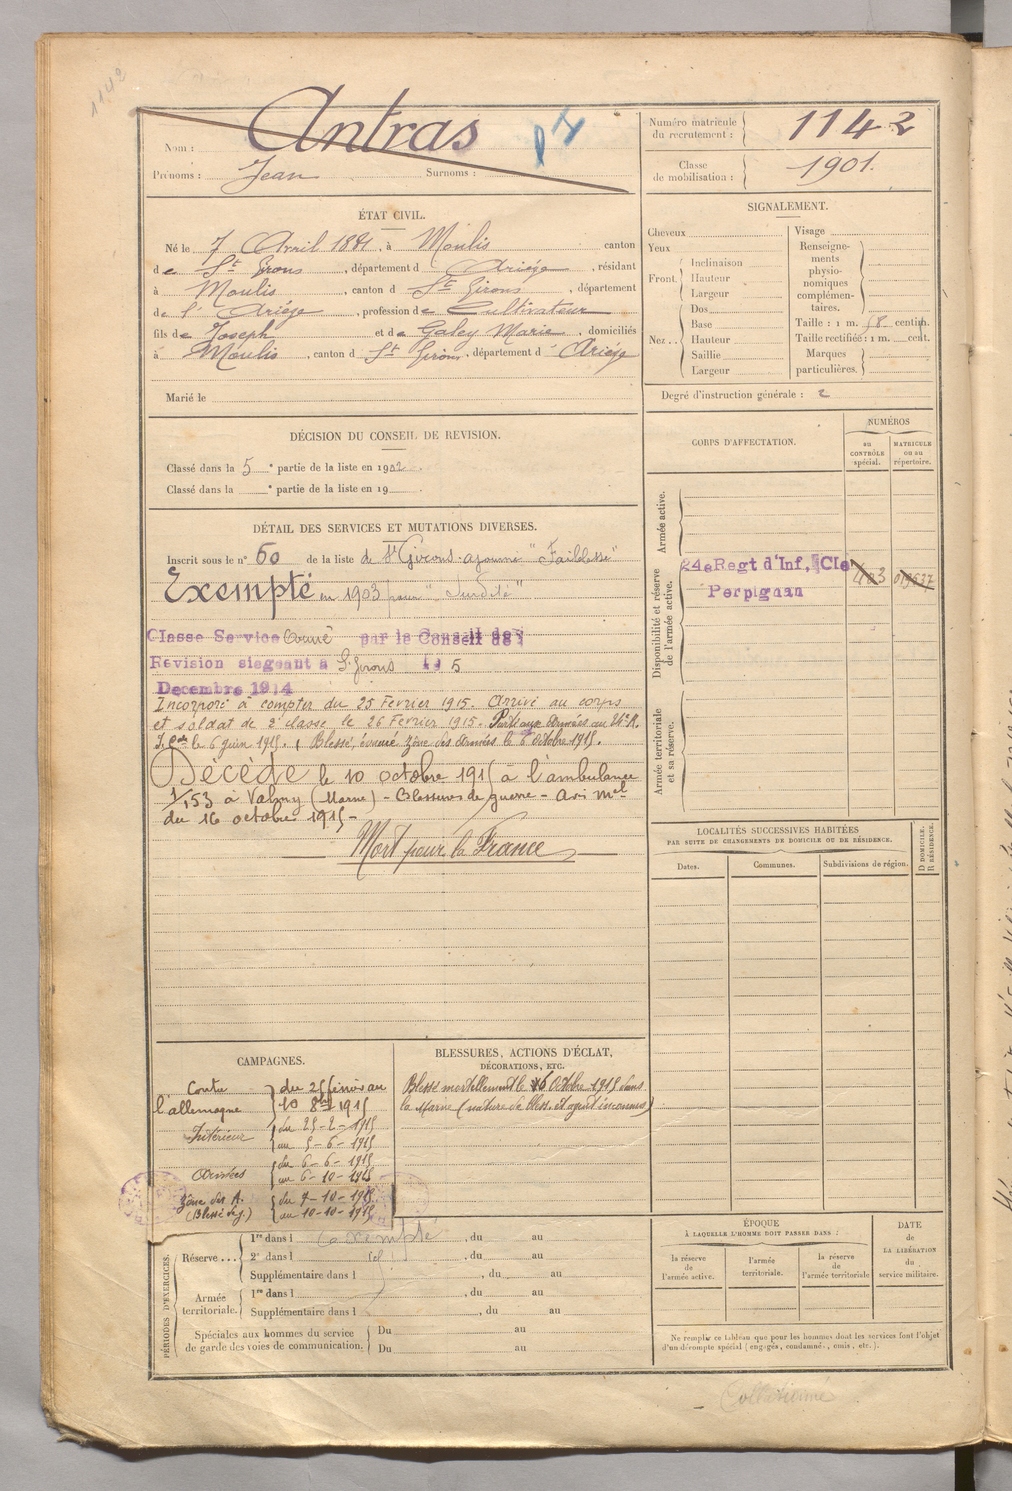 1142
Nom : Antras
Prénoms : Jean Surnoms :
Numéro matricule du recrutement : 1142
Classe de mobilisation : 1901.
ÉTAT CIVIL.
Né le 7 Avril 1881, à Moulis canton
de St Girons, département d Ariége, résidant
à Moulis, canton d St Girons, département
de l' Ariége, profession de Cultivateur
fils de Joseph et de Galey Marie, domiciliés
à Moulis, canton d St Girons, département d' Ariége
Marié le
SIGNALEMENT.
Cheveux
Yeux
Front. Inclinaison
Hauteur
Largeur
Nez.. Dos
Base
Hauteur
Saillie
Largeur
Visage
Renseignements physionomiques complémentaires.
Taille : 1 m. 58 centim.
Taille rectifiée : 1 m. cent.
Marques particulières.
Degré d'instruction générale : 2
DÉCISION DU CONSEIL DE REVISION.
Classé dans la 5 e partie de la liste en 1902.
Classé dans la e partie de la liste en 19
CORPS D'AFFECTATION.
NUMÉROS
au CONTRÔLE spécial.
MATRICULE ou au répertoire.
Armée active.
Disponibilité et réserve de l'armée active.
24e Regt d'Inf, Cie 403 019637
Perpignan
Armée territoriale et sa réserve.
DÉTAIL DES SERVICES ET MUTATIONS DIVERSES.
Inscrit sous le n° 60 de la liste de St Girons. ajourné "Faiblesse"
Exempté en 1903 pour "Surdité"
Classe Service Armé par le Conseil de
Revision siegeant à St Girons le 5
Decembre 1914
Incorporé à compter du 25 Février 1915. Arrivé au corps
et soldat de 2e classe le 26 Février 1915. Parti aux Armées au 24e R.
I. Cal le 6 juin 1915. Blessé, évacué Zône des Armées le 6 Octobre 1915.
Décédé le 10 octobre 1915 à l'ambulance
1/153 à Valmy (Marne) - Blessures de guerre - Avis mel
du 16 octobre 1915 -
Mort pour la France
LOCALITÉS SUCCESSIVES HABITÉES
PAR SUITE DE CHANGEMENTS DE DOMICILE OU DE RÉSIDENCE.
Dates. Communes. Subdivisions de région.
D DOMICILE, R RÉSIDENCE.
CAMPAGNES.
Contre l'allemagne du 25 févrir au 10 8bre 1915
Intérieur du 25-2-1915 au 5-6-1915
Armées du 6-6-1915 au 6-10-1915
Zône des A. (Blessé de g.) du 7-10-1915 au 10-10-1915
BLESSURES, ACTIONS D'ÉCLAT,
DÉCORATIONS, ETC.
Blessé mortellement le 6 Octobre 1915 dans
la Marne (nature de bless. et agent inconnus)
PÉRIODES D'EXERCICES.
Réserve... 1re dans l exempté, du au
2e dans l id, du au
Supplémentaire dans l, du au
Armée territoriale. 1re dans l, du au
Supplémentaire dans l, du au
Spéciales aux hommes du service de garde des voies de communication. Du au
Du au
ÉPOQUE
À LAQUELLE L'HOMME DOIT PASSER DANS :
la réserve de l'armée active.
l'armée territoriale.
la réserve de l'armée territoriale
DATE DE LA LIBÉRATION du service militaire.
Ne remplir ce tableau que pour les hommes dont les services font l'objet
d'un décompte spécial (engagés, condamnés, omis, etc.).
Collationné